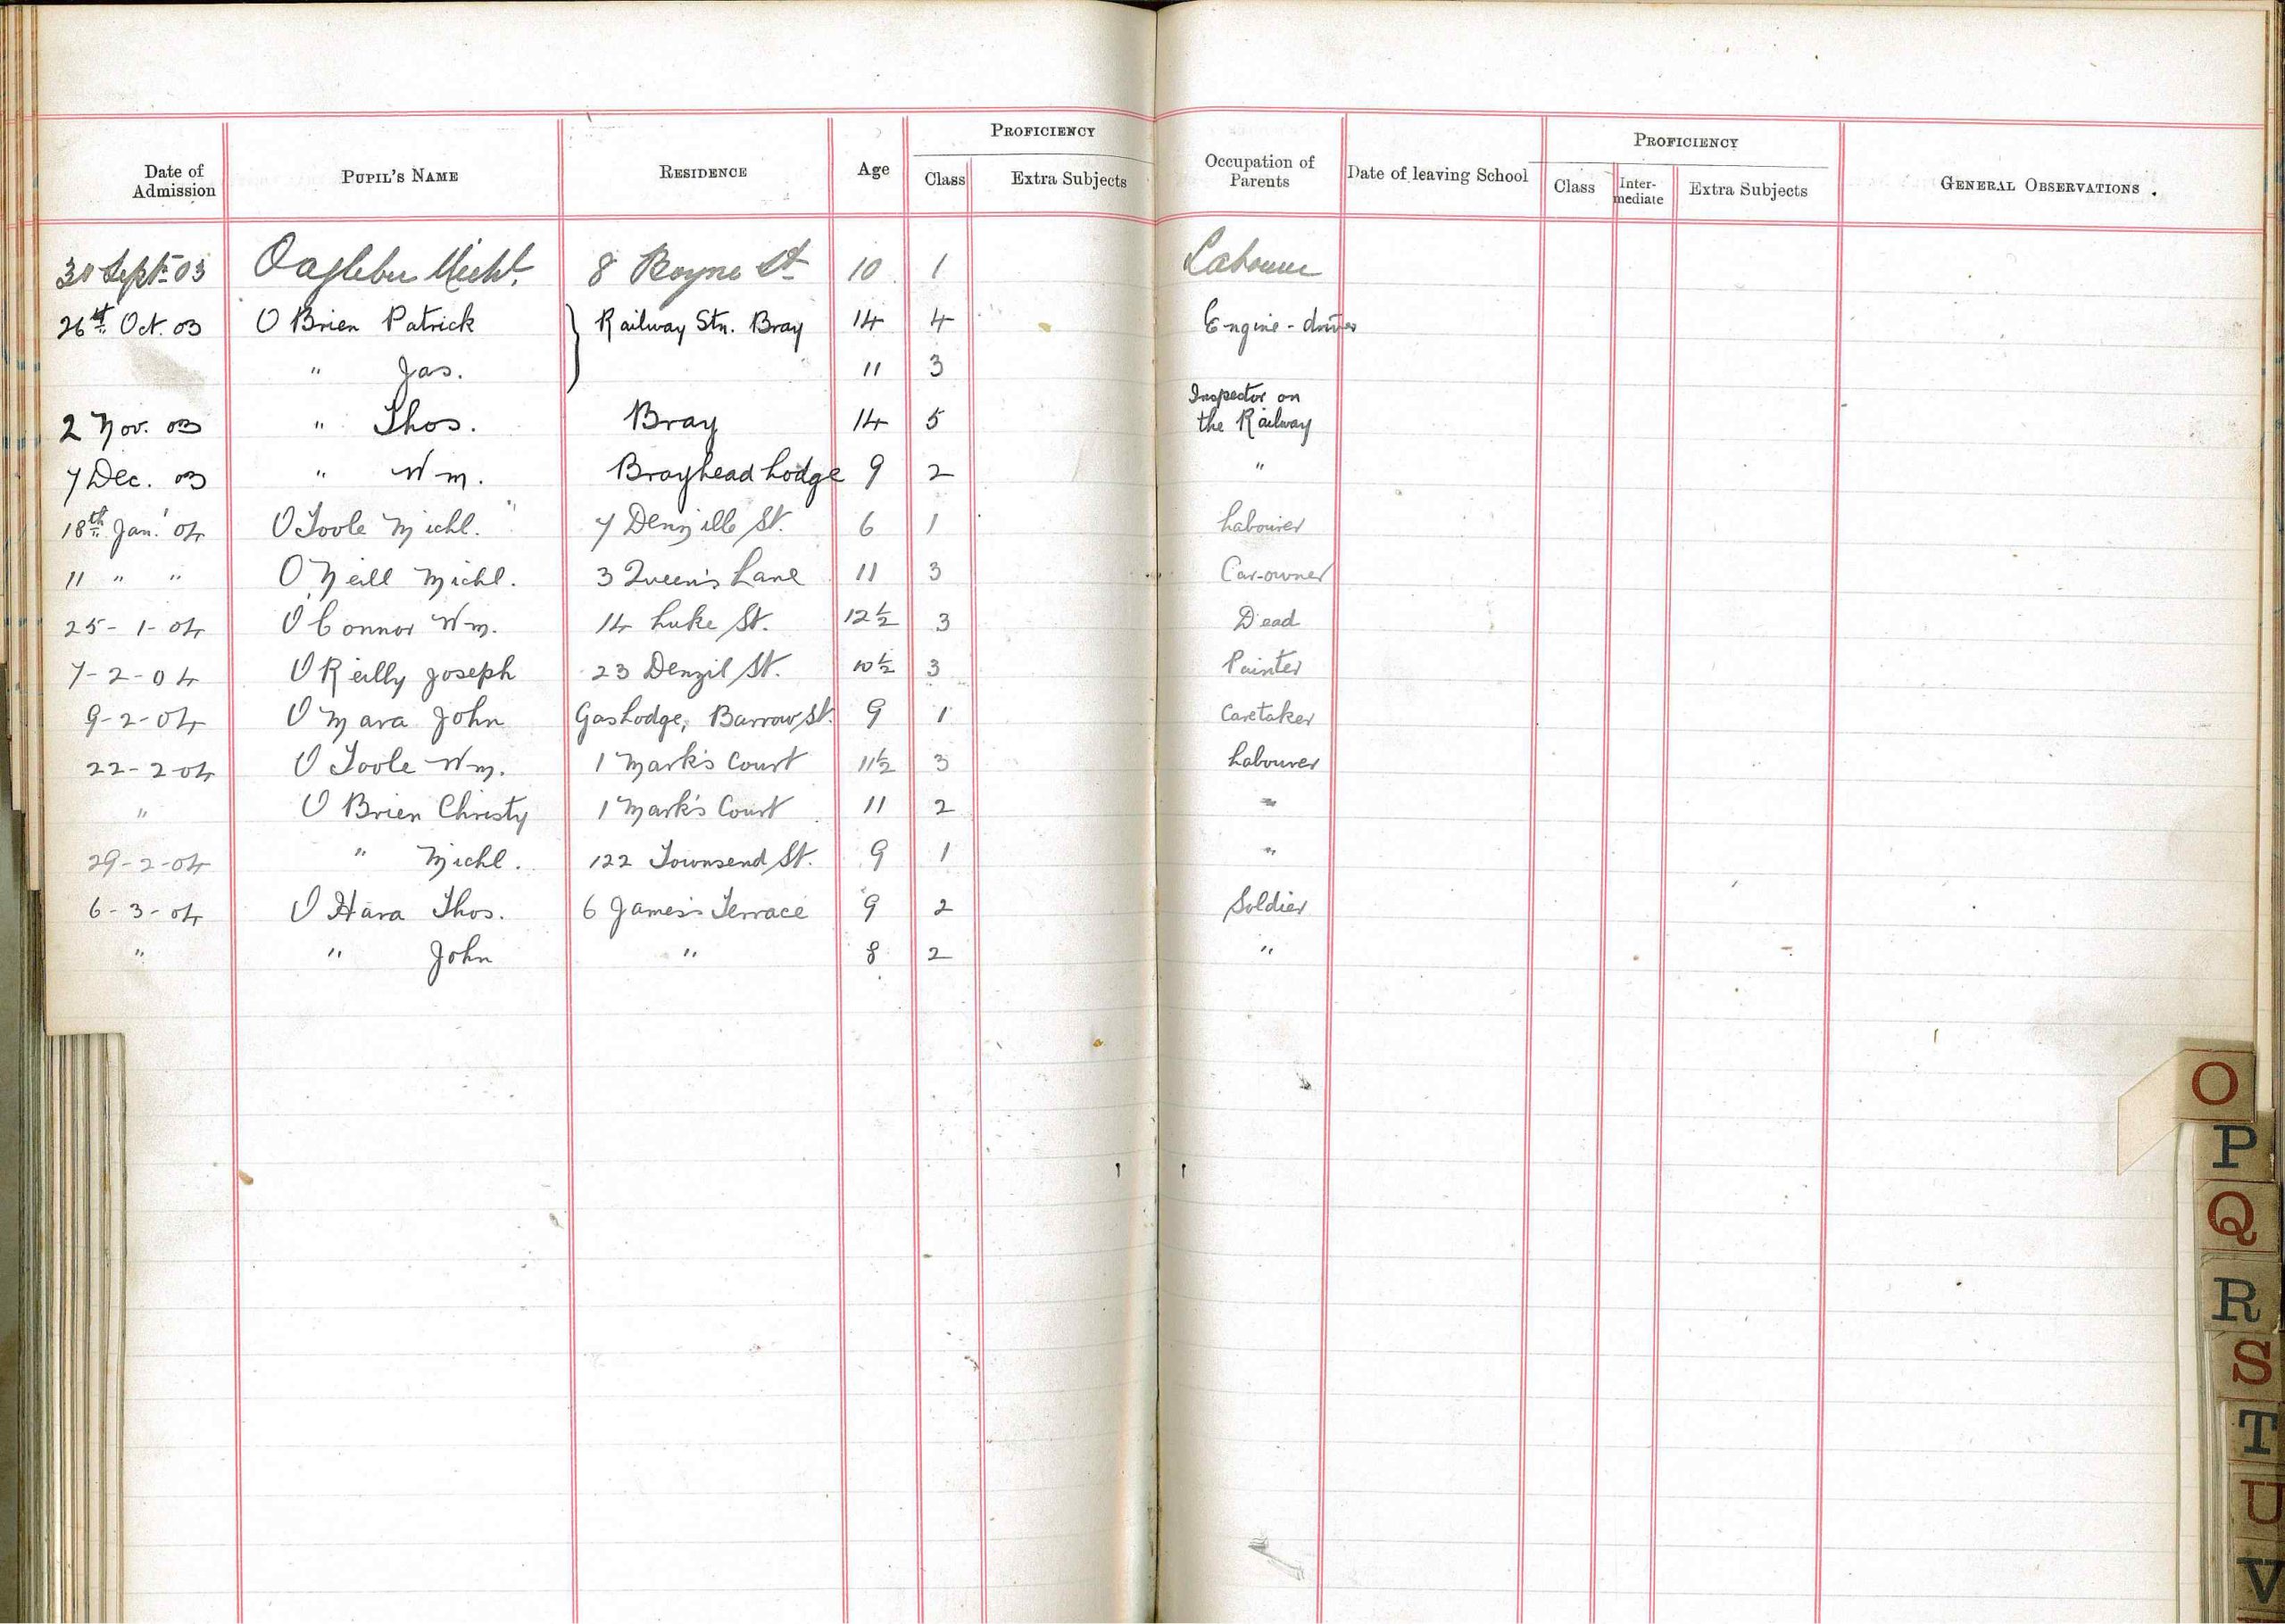 PROFICIENCY PROFICIENCY
Date of Admission PUPIL'S NAME RESIDENCE Age Class Extra Subjects Occupation of Parents Date of leaving School Class Inter-mediate Extra Subjects GENERAL OBSERVATIONS.
30 Sept. 03 Michl. 8 Boyne St 10 1 Labourer
26th Oct. 03 O Brien Patrick } Railway Stn. Bray 14 4 Engine-driver
" Jas. 11 3
2 Nov. 03 " Thos. Bray 14 5 Inspector on the Railway
7 Dec. 03 " Wm. Brayhead Lodge 9 2 "
18th Jan. '04 O Toole Michl. 7 Denzille St. 6 1 Labourer
11 " " O Neill Michl. 3 Queen's Lane 11 3 Car-owner
25-1-04 O Connor Wm. 14 Luke St. 12½ 3 Dead
7-2-04 O Reilly Joseph 23 Denzil St. 10½ 3 Painter
9-2-04 O Mara John Gas Lodge, Barrow St. 9 1 Caretaker
22-2-04 O Toole Wm. 1 Mark's Court 11½ 3 Labourer
" O Brien Christy 1 Mark's Court 11 2 "
29-2-04 " Michl. 122 Townsend St. 9 1 "
6-3-04 O Hara Thos. 6 James's Terrace 9 2 Soldier
" " John " 8 2 "
O
P
Q
R
S
T
U
V